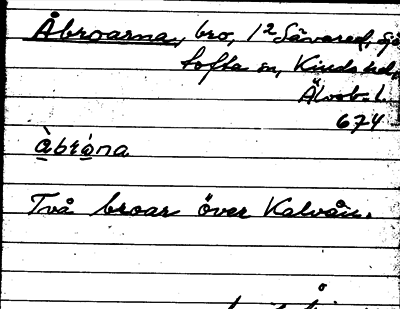 Åbroarna, bro, 1² Sävared, Sjö
tofta sn, Kinds hd,
Älvsb. l.
674
àbrána
Två broar över Kalvån.